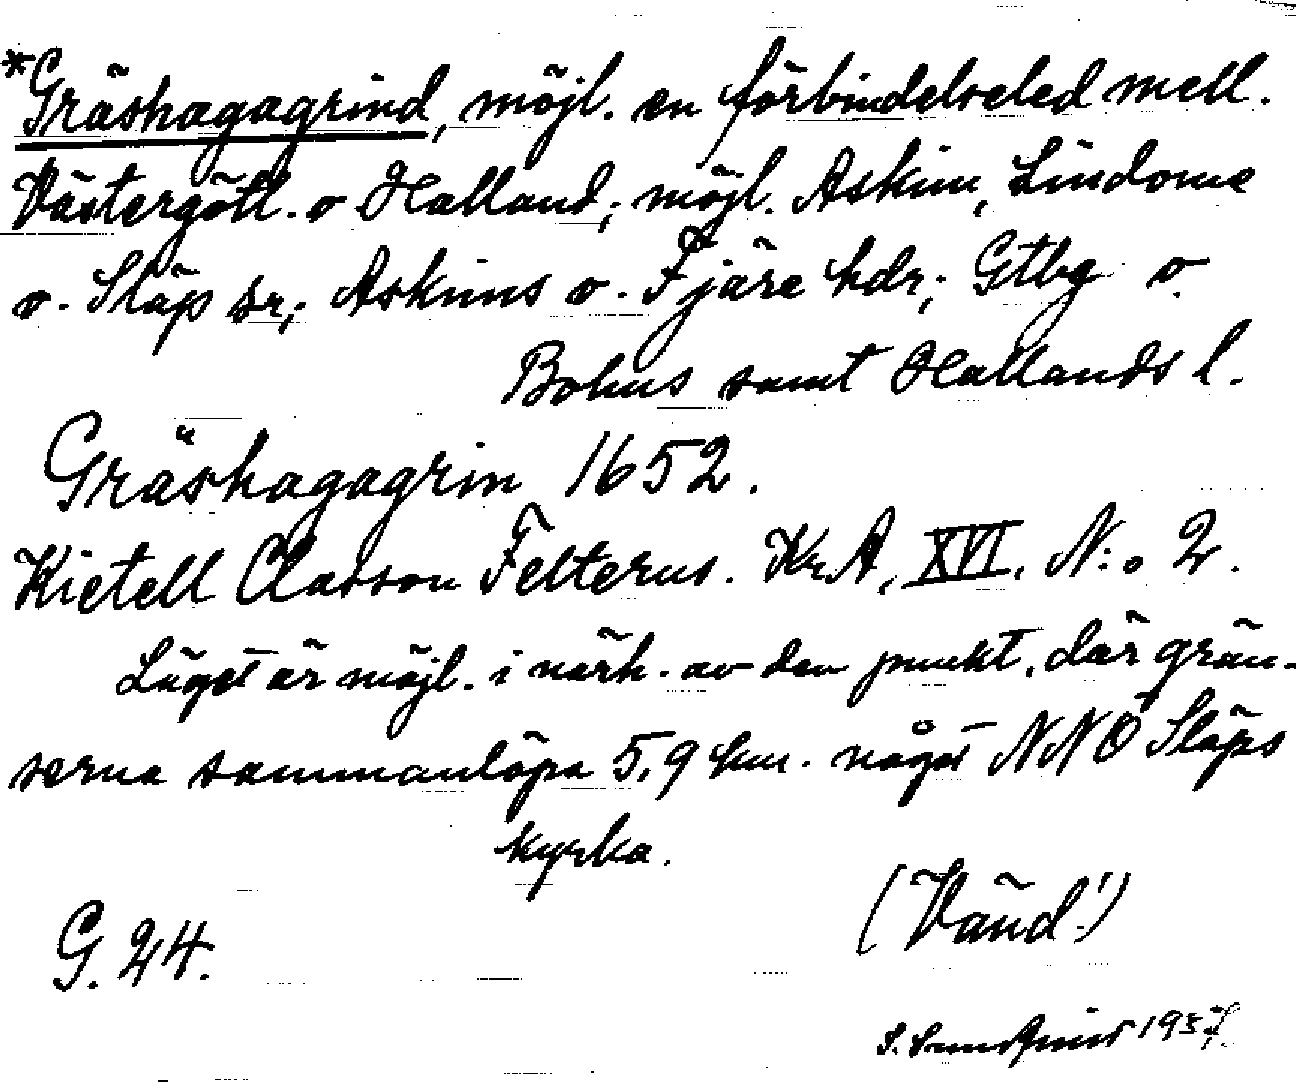 *Gräshagagrind, möjl. en förbindelseled mell.
Västergötl. o Halland; möjl. Askim, Lindome
o. Släp sr; Askims o. Fjäre hdr; Gtbg o.
Bohus samt Hallands l.
Gräshagagrin 1652.
Kietell Classon Felterus. KrA, XVI. N:o 2.
Läget är möjl. i närh. av den punkt, där grän-
serna sammanlöpa 5,9 km. något NNÖ Släps
kyrka.
(Vänd!)
G. 24.
S. 1957